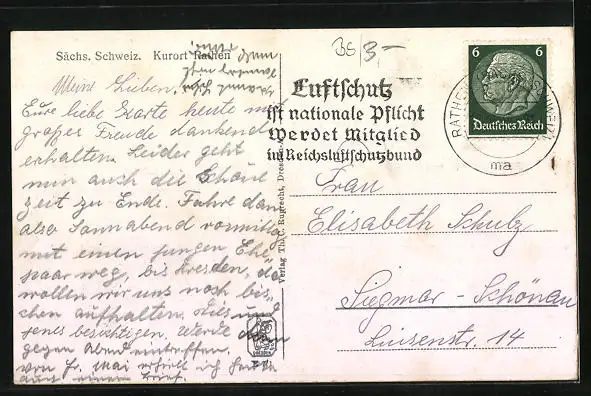 Sächs. Schweiz. Kurort Rathen
BS/3,-
Meine Lieben.
Eure liebe Karte heute mit
großer Freude dankend
erhalten. Leider geht
nun auch die schöne
Zeit zu Ende. Fahre dann
also Sonnabend vormittag
mit einem jungen Ehe
paar weg, bis Dresden, da
wollen wir uns noch bis-
chen aufhalten. Dies und
jenes besichtigen. Werde
gegen Abend eintreffen.
von Fr. Mai erhielt ich heute
auch einen Brief.
Verlag Th. C. Ruprecht, Dresden
Luftschutz
ist nationale Pflicht
Werdet Mitglied
im Reichsluftschutzbund
6 6
Deutsches Reich
RATHEN
ma
Frau
Elisabeth Schulz
Siegmar-Schönau
Luisenstr. 14